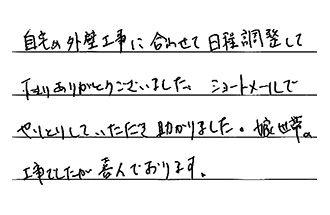 自宅の外壁工事に合わせて日程調整して
下さりありがとうございました。ショートメールで
やりとりしていただき助かりました。嫁世帯の
工事でしたが喜んでおります。